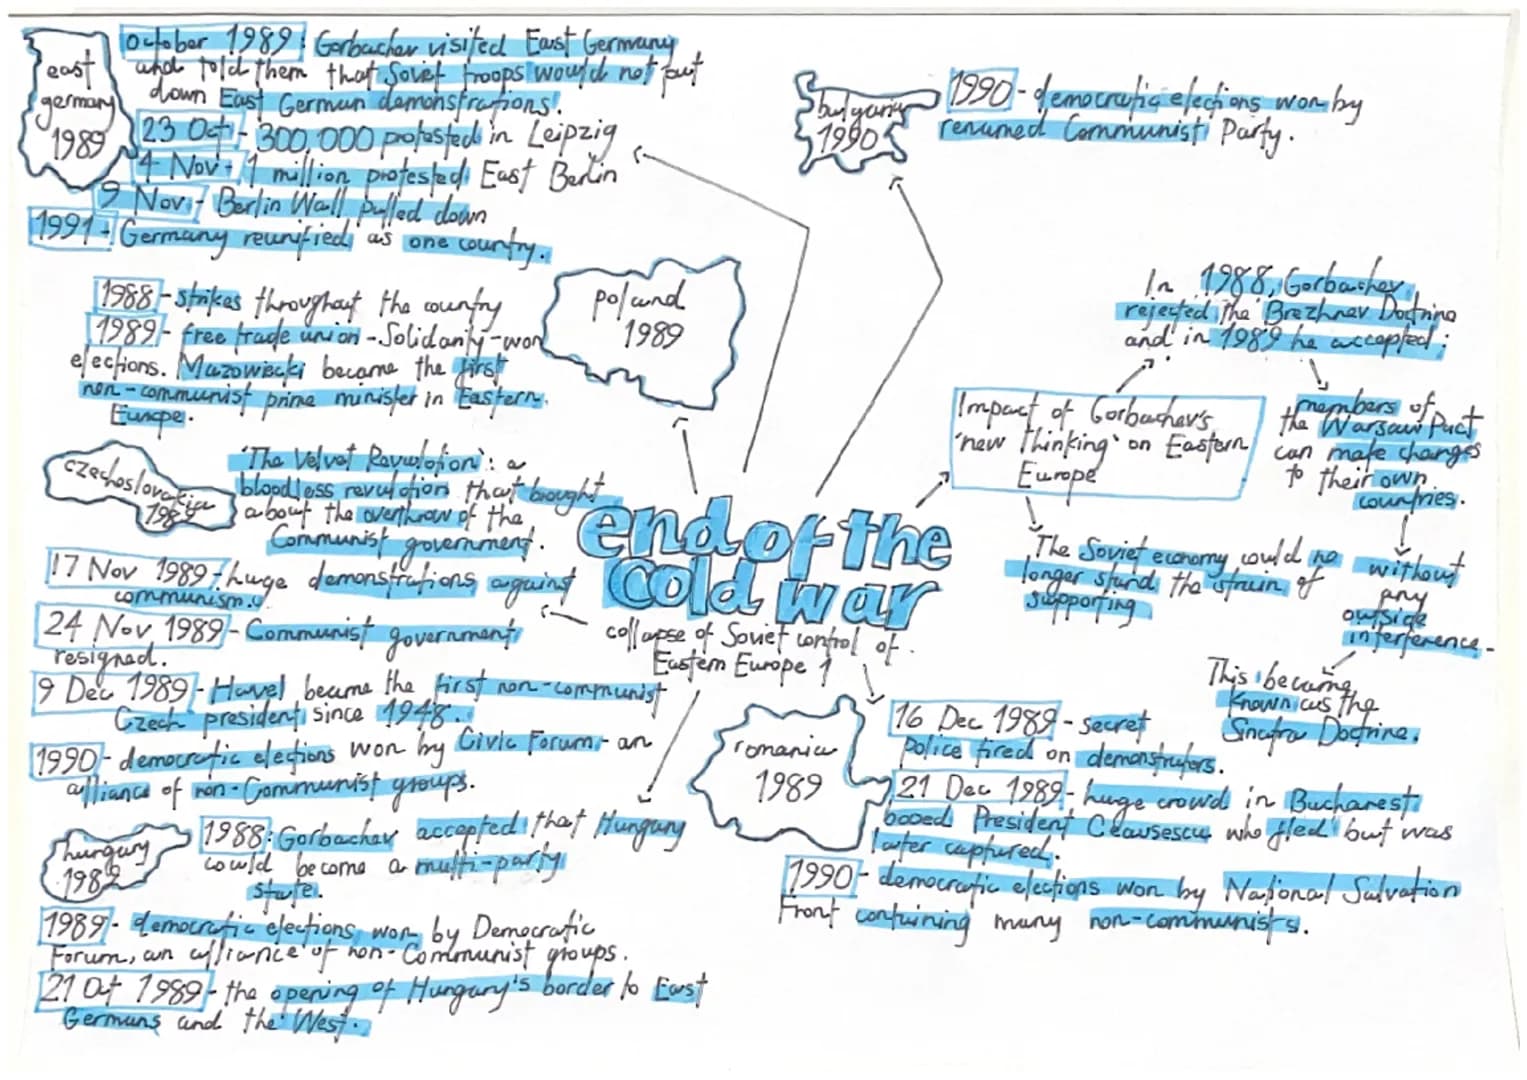 east
germany
1989
October 1989: Gorbachev visited East Germany
and told them that Soviet troops would not put
down East German demonstrations.
23 Oct - 300,000 protested in Leipzig
4 Nov - 1 million protested East Berlin
9 Nov - Berlin Wall pulled down
1991 - Germany reunified as one country.
bulgaria
1990
1990 - democratic elections won by
renamed Communist Party.
poland
1989
1988 - strikes throughout the country
1989 - free trade union - Solidarity - won
elections. Mazowiecki became the first
non-communist prime minister in Eastern
Europe.
In 1988, Gorbachev
rejected the Brezhnev Doctrine
and in 1989 he accepted:
members of
the Warsaw Pact
can make changes
to their own
countries.
without
any
outside
interference.
This became
known as the
Sinatra Doctrine.
Impact of Gorbachev's
'new thinking' on Eastern
Europe
The Soviet economy could no
longer stand the strain of
supporting
czechoslovakia
'The Velvet Revolution': a
bloodless revolution that brought
about the overthrow of the
Communist government.
17 Nov 1989 - huge demonstrations against
communism.
24 Nov 1989 - Communist government
resigned.
9 Dec 1989 - Havel became the first non-communist
Czech president since 1948.
1990 - democratic elections won by Civic Forum - an
alliance of non-Communist groups.
end of the
cold war
collapse of Soviet control of
Eastern Europe 1
romania
1989
16 Dec 1989 - secret
police fired on demonstrators.
21 Dec 1989 - huge crowd in Bucharest
booed President Ceausescu who fled but was
later captured.
1990 - democratic elections won by National Salvation
Front containing many non-communists.
hungary
1989
1988: Gorbachev accepted that Hungary
could become a multi-party
state.
1989 - democratic elections won by Democratic
Forum, an alliance of non-Communist groups.
21 Oct 1989 - the opening of Hungary's border to East
Germans and the West.